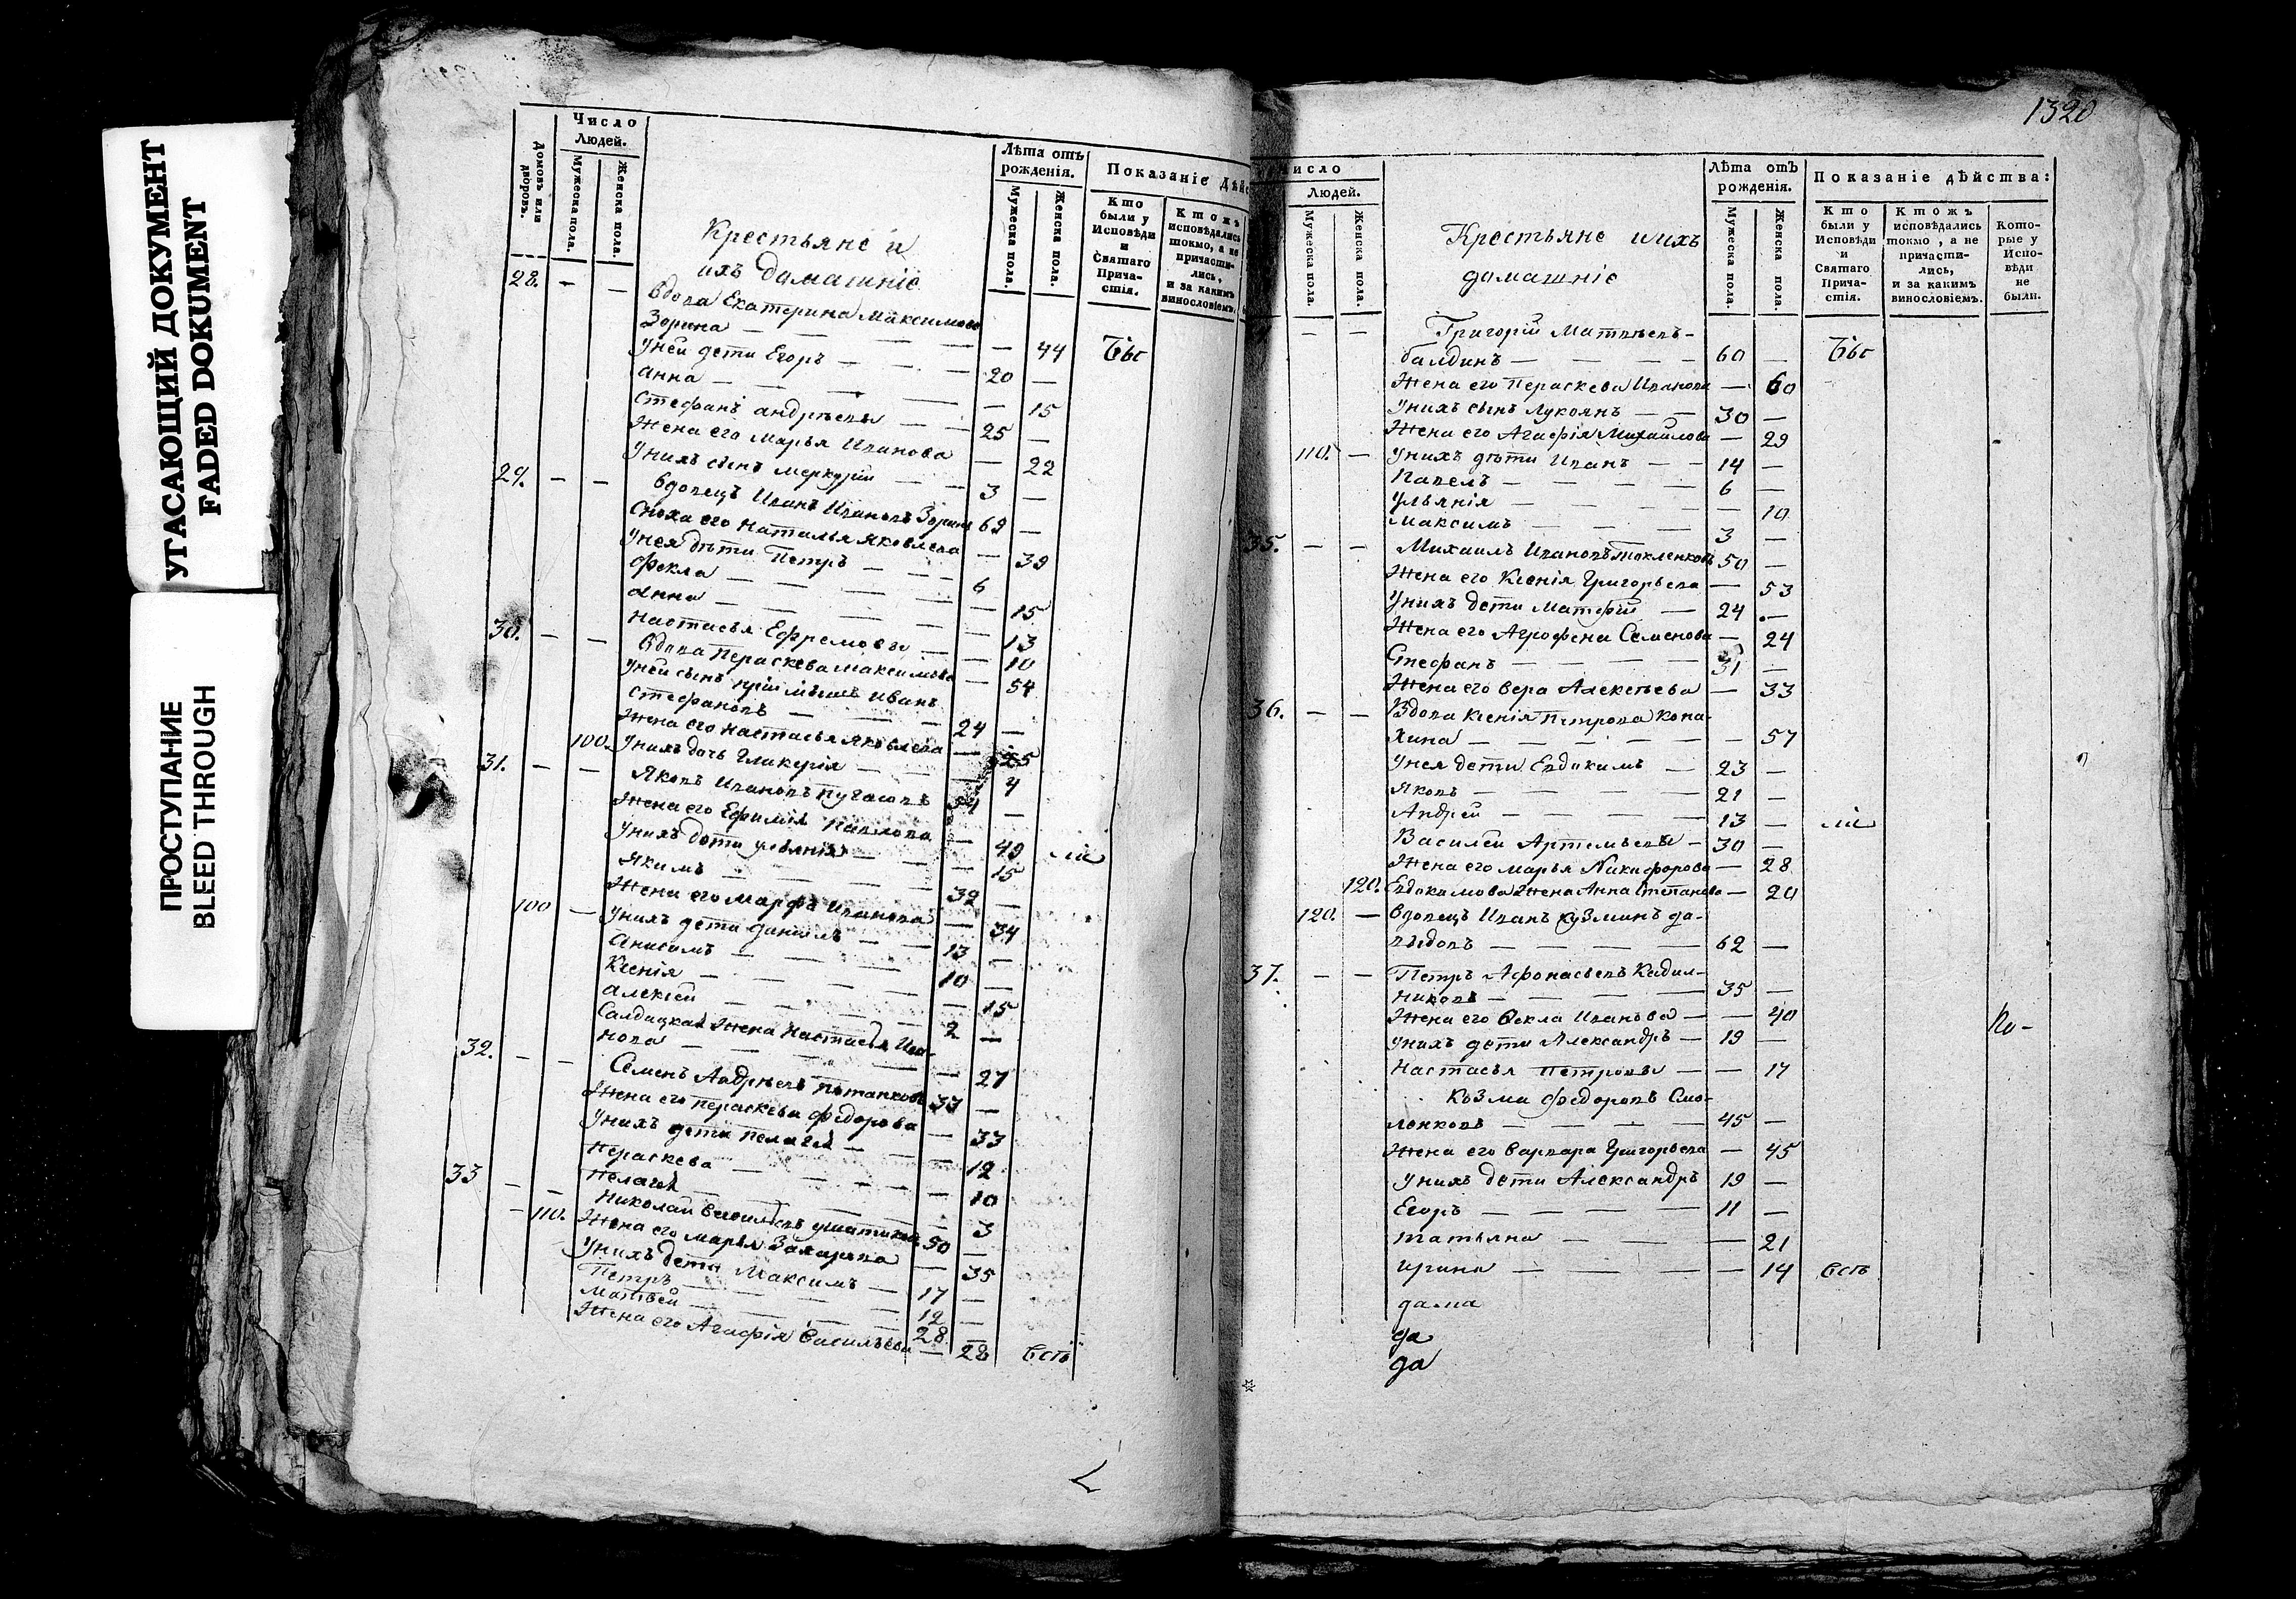 УГАСАЮЩИЙ ДОКУМЕНТ
FADED DOKUMENT
ПРОСТУПАНИЕ
BLEED THROUGH
Домовъ или дворовъ.
Число Людей.
Мужеска пола.
Женска пола.
Крестьяне и
ихъ домашніе
Лѣта отъ рожденія.
Мужеска пола.
Женска пола.
Показаніе дѣйс
Кто были у Исповѣди и Святаго Причастія.
Ктожъ исповѣдались токмо, а не причастились, и за какимъ винословіемъ.
28. — — Вдова Екатерина Максимова
Зорина — — 44 Бы
Уней дети Егоръ — 20 —
Анна — — 15
Стефанъ Андрѣевъ — 25 —
Жена его Марья Иванова — 22
Унихъ сынъ Меркурій — 3 —
29. — — Вдовецъ Иванъ Ивановъ Зоринъ 69 —
Сноха его Наталья Яковлева — 39
Унея дѣти Петръ — 6
Фекла — — 15
Анна — — 13
Настасья Ефремова — — 10
30. — — Вдова Пераскева Максимова — 54
Уней сынъ Иванъ
Стефановъ — 24 —
Жена его Настасья Яковлева — 25
100. Унихъ дочь Гликерія — — 4
31. — — Яковъ Ивановъ Пугасовъ 54 —
Жена его Ефимія Павлова — 49 ли
Унихъ дети Ульянія — — 15
Якимъ — 32 —
Жена его Марфа Иванова — 34
100 — Унихъ дети Данилъ — 13 —
Анисимъ — 10 —
Ксенія — — 15
Алексѣй — 2 —
Салдацкая Жена Настасья Ива-
нова — — 27
32. — — Семенъ Андрѣевъ Потапковъ 33 —
Жена его Пераскева Федорова — 33
Унихъ дети Пелагея — — 12
Пераскева — — 10
Пелагея — — 3
33 — — Николай Васильевъ 50 —
— 110. Жена его Марья Захарова — 35
Унихъ дети Максимъ — 17 —
Петръ — 12 —
Матвей — 28 —
Жена его Агафія Васильева — 28 Есть
1320
исло
Людей.
Мужеска пола.
Женска пола.
Крестьяне ихъ
домашніе
Лѣта отъ рожденія.
Мужеска пола.
Женска пола.
Показаніе дѣйства:
Кто были у Исповѣди и Святаго Причастія.
Ктожъ исповѣдались токмо, а не причастились, и за какимъ винословіемъ.
Которые у Исповѣди не были.
— — Григорій Матвѣевъ
балдинъ — 60 — Бы
Жена его Пераскева Иванова — 60
Унихъ сынъ Лукоянъ — 30 —
Жена его Агафія Михайлова — 29
110. — Унихъ дѣти Иванъ — 14 —
Павелъ — 6 —
Ульянія — — 10
Максимъ — 3 —
35. — — Михаилъ Ивановъ 50 —
Жена его Ксенія Григорьева — 53
Унихъ дети Матфѣй — 24 —
Жена его Агрофена Семенова — 24
Стефанъ — 31 —
Жена его Вера Алексѣева — 33
36. — — Вдова Ксенія Петрова Кона-
хина — — 57
Унея дети Евдокимъ — 23 —
Яковъ — 21 —
Андрей — 13 — ли
Василей Артемьевъ — 30 —
Жена его Марья Никифорова — 28
120. Евдокимова Жена Анна Степанова — 20
120. — Вдовецъ Иванъ Кузминъ да-
выдовъ — 62 —
37. — — Петръ Афонасьевъ Кадил-
никовъ — 35 —
Жена его Фекла Иванова — — 40 Ко-
Унихъ дети Александръ — 19 —
Настасья Петрова — — 17
Козма Федоровъ Смо-
ленковъ — 45 —
Жена его Варвара Григорьева — 45
Унихъ дети Александръ 19 —
Егоръ — 11 —
Татьяна — — 21
Ирина — — 14 Есть
дама
да
да